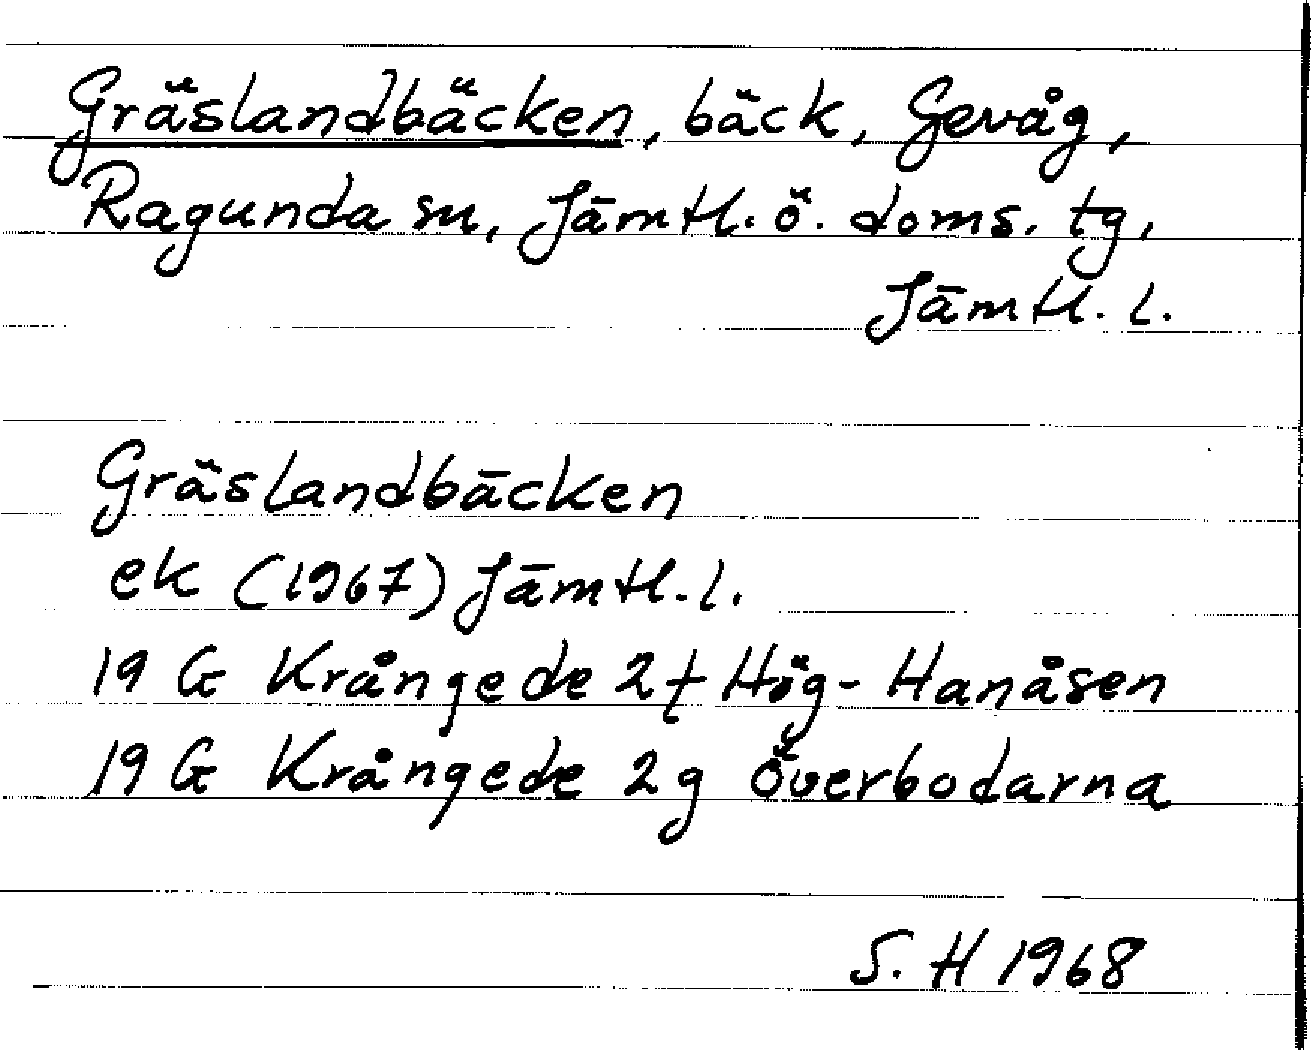 Gräslandbäcken, bäck, Gevåg,
Ragunda sn, Jämtl. ö. doms. tg,
Jämtl. l.
Gräslandbäcken
ek (1967) Jämtl. l.
19 G Krångede 2f Hög-Hanåsen
19 G Krångede 2g Överbodarna
S. H 1968